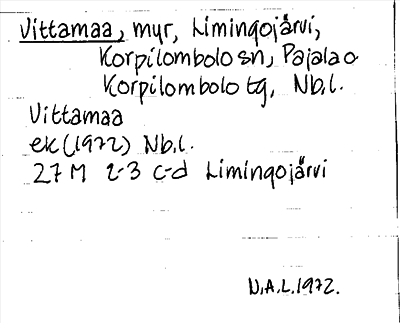 Vittamaa, myr, Limingojärvi,
Korpilombolo sn, Pajala o
Korpilombolo tg, Nb.l.
Vittamaa
ek (1972) Nb.l.
27 M 2-3 c-d Limingojärvi
N.A.L. 1972.